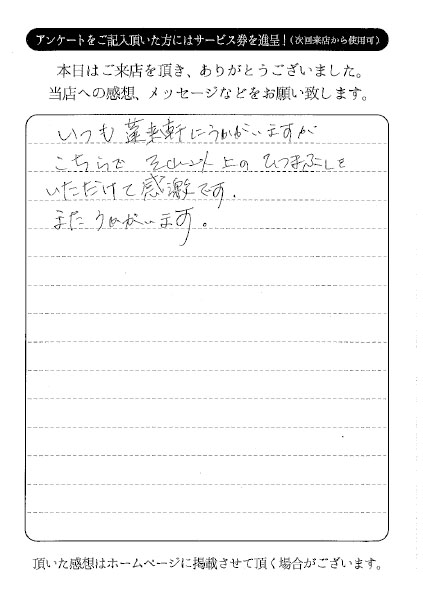 アンケートをご記入頂いた方にはサービス券を進呈！（次回来店から使用可）
本日はご来店を頂き、ありがとうございました。
当店への感想、メッセージなどをお願い致します。
いつも蓬来軒にうかがいますが
こちらで それ以上の ひつまぶしを
いただけて感激です．
またうかがいます。
頂いた感想はホームページに掲載させて頂く場合がございます。